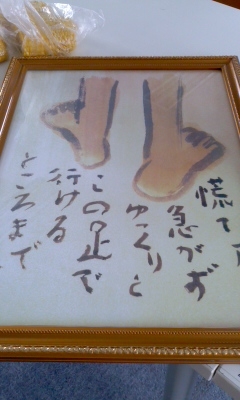 慌て
急がず
ゆっくりと
この足で
行ける
ところまで